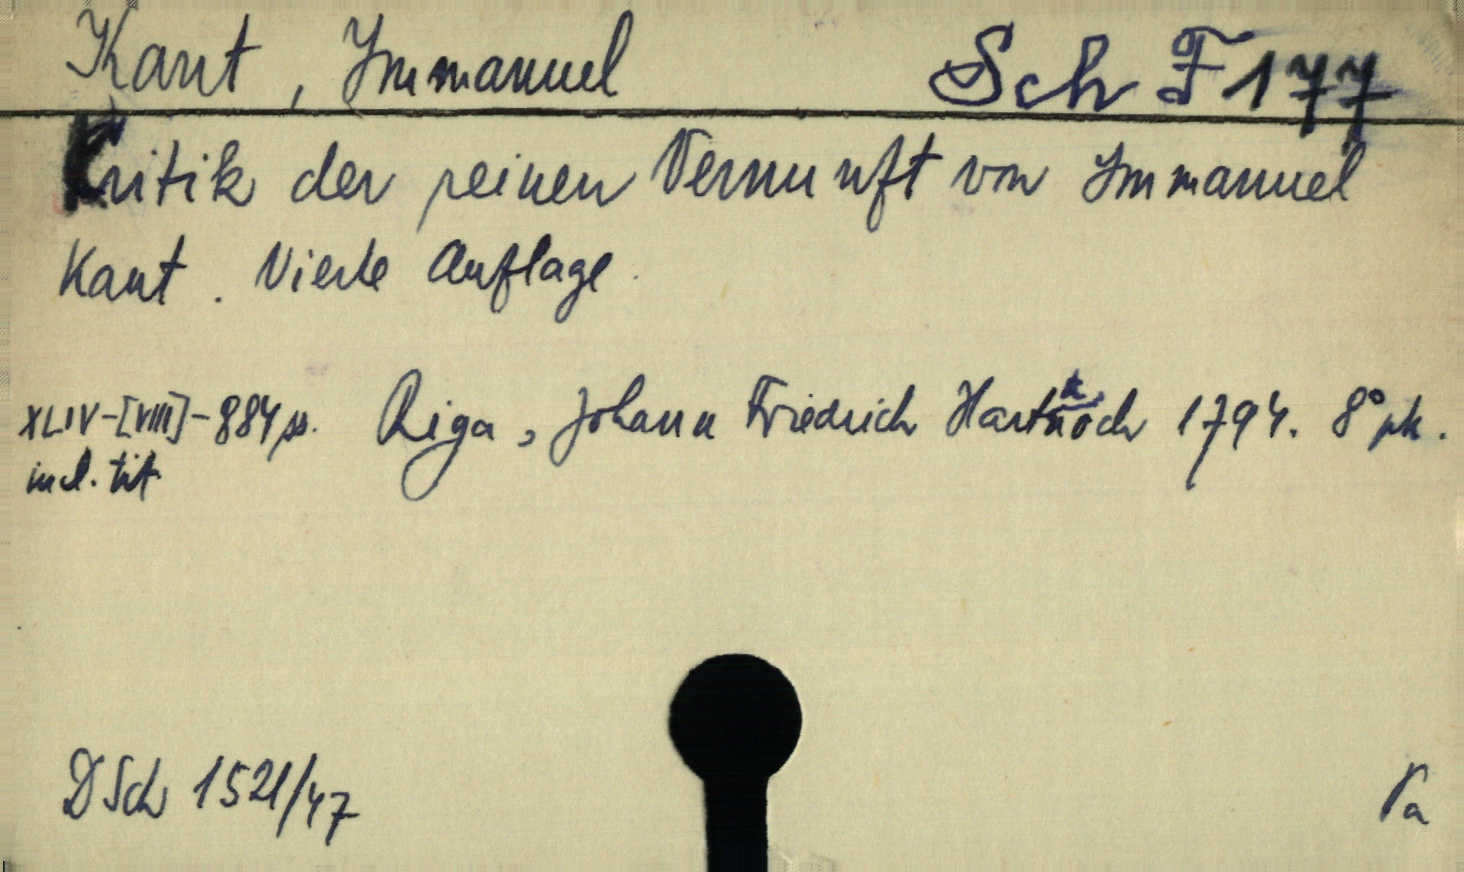 Kant, Immanuel Sch F 177
Kritik der reinen Vernunft von Immanuel
Kant. Vierte Auflage.
XLIV-[VIII]-884 pp. Riga, Johann Friedrich Hartknoch 1794. 8° pk.
incl. tit.
DSch 1521/47